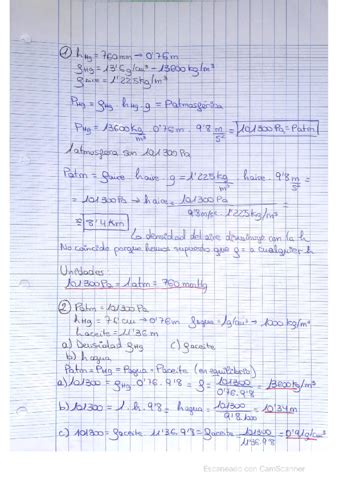 ① h Hg = 760mm → 0'76m
ρHg = 13'6g/cm³ - 13600kg/m³
ρaire = 1'225kg/m³
PHg = ρHg · hHg · g = Patmosférica
PHg = 13600 kg/m³ · 0'76m · 9'8 m/s² = 101300Pa = Patm
1 atmosfera son 101300Pa
Patm = ρaire · haire · g = 1'225 kg/m³ · haire · 9'8 m/s² =
= 101300Pa → haire = 101300Pa / 9'8m/s² · 1'225kg/m³ =
= 8'4 Km
La densidad del aire disminuye con la h
No coincide porque hemos supuesto que ρ = a cualquier h
Unidades
101300Pa = 1atm = 760mmHg
② Patm = 101300Pa
hHg = 76cm → 0'76m ρagua = 1g/cm³ → 1000kg/m³
haceite = 11'36m
a) Densidad ρHg c) ρaceite
b) h agua
Patm = PHg = Pagua = Paceite (en equilibrio)
a) 101300 = ρHg · 0'76 · 9'8 = ρ = 101300 / 0'76 · 9'8 = 13600kg/m³
b) 101300 = 1 · h · 9'8 = hagua = 101300 / 9'8 · 1000 = 10'34m
c) 101300 = ρaceite · 11'36 · 9'8 = ρaceite = 101300 / 11'36 · 9'8 = 0'91g/cm³
Escaneado con CamScanner